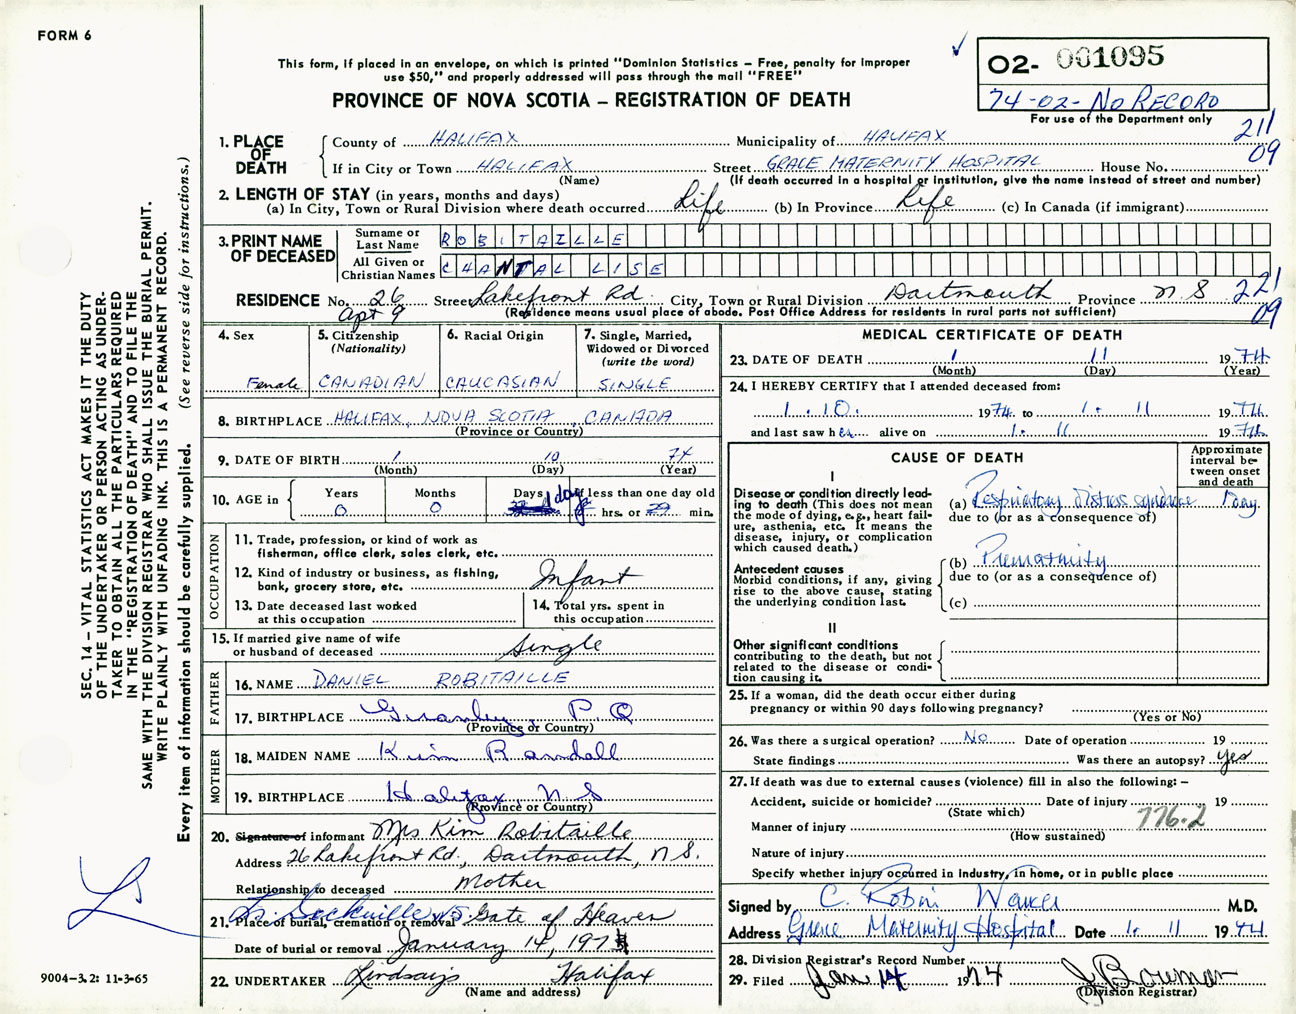 FORM 6
This form, if placed in an envelope, on which is printed "Dominion Statistics – Free, penalty for improper
use $50," and properly addressed will pass through the mail "FREE"
PROVINCE OF NOVA SCOTIA – REGISTRATION OF DEATH
✓
O2- 001095
74-02- NO RECORD
For use of the Department only
211
09
1. PLACE OF DEATH
County of HALIFAX Municipality of HALIFAX
If in City or Town HALIFAX Street GRACE MATERNITY HOSPITAL House No.
(Name) (If death occurred in a hospital or institution, give the name instead of street and number)
2. LENGTH OF STAY (in years, months and days)
(a) In City, Town or Rural Division where death occurred Life (b) In Province Life (c) In Canada (if immigrant)
3. PRINT NAME OF DECEASED
Surname or Last Name ROBITAILLE
All Given or Christian Names CHANTAL LISE
RESIDENCE No. 26 Street Lakefront Rd. City, Town or Rural Division Dartmouth Province N S
Apt 9 (Residence means usual place of abode. Post Office Address for residents in rural parts not sufficient)
221
09
4. Sex
Female
5. Citizenship
(Nationality)
CANADIAN
6. Racial Origin
CAUCASIAN
7. Single, Married,
Widowed or Divorced
(write the word)
SINGLE
8. BIRTHPLACE HALIFAX, NOVA SCOTIA, CANADA
(Province or Country)
9. DATE OF BIRTH 1 10 74
(Month) (Day) (Year)
10. AGE in
Years Months Days If less than one day old
0 0 1 day hrs. or 29 min.
OCCUPATION
11. Trade, profession, or kind of work as
fisherman, office clerk, sales clerk, etc.
12. Kind of industry or business, as fishing,
bank, grocery store, etc. Infant
13. Date deceased last worked
at this occupation
14. Total yrs. spent in
this occupation
15. If married give name of wife
or husband of deceased Single
FATHER
16. NAME DANIEL ROBITAILLE
17. BIRTHPLACE Granby, P Q
(Province or Country)
MOTHER
18. MAIDEN NAME Kim Randall
19. BIRTHPLACE Halifax, N S
(Province or Country)
20. Signature of informant Mrs Kim Robitaille
Address 26 Lakefront Rd., Dartmouth, N.S.
Relationship to deceased Mother
21. Place of burial, cremation or removal Sackville NS Gate of Heaven
Date of burial or removal January 14, 197
22. UNDERTAKER Lindsay's Halifax
(Name and address)
MEDICAL CERTIFICATE OF DEATH
23. DATE OF DEATH 1 11 1974
(Month) (Day) (Year)
24. I HEREBY CERTIFY that I attended deceased from:
1. 10. 1974 to 1. 11 1974
and last saw her alive on 1. 11 1974
CAUSE OF DEATH
Approximate
interval be-
tween onset
and death
I
Disease or condition directly lead-
ing to death (This does not mean
the mode of dying, e.g., heart fail-
ure, asthenia, etc. It means the
disease, injury, or complication
which caused death.)
(a) Respiratory distress syndrome 1 day
due to (or as a consequence of)
Antecedent causes
Morbid conditions, if any, giving
rise to the above cause, stating
the underlying condition last.
(b) Prematurity
due to (or as a consequence of)
(c)
II
Other significant conditions
contributing to the death, but not
related to the disease or condi-
tion causing it.
25. If a woman, did the death occur either during
pregnancy or within 90 days following pregnancy?
(Yes or No)
26. Was there a surgical operation? No Date of operation 19
State findings Was there an autopsy? Yes
27. If death was due to external causes (violence) fill in also the following: –
Accident, suicide or homicide? Date of injury 19
(State which)
Manner of injury 776.2
(How sustained)
Nature of injury
Specify whether injury occurred in industry, in home, or in public place
Signed by C. Robin Walker M.D.
Address Grace Maternity Hospital Date 1. 11 1974
28. Division Registrar's Record Number
29. Filed Jan 14 1974
(Division Registrar)
SEC. 14 – VITAL STATISTICS ACT MAKES IT THE DUTY
OF THE UNDERTAKER OR PERSON ACTING AS UNDER-
TAKER TO OBTAIN ALL THE PARTICULARS REQUIRED
IN THE "REGISTRATION OF DEATH" AND TO FILE THE
SAME WITH THE DIVISION REGISTRAR WHO SHALL ISSUE THE BURIAL PERMIT.
WRITE PLAINLY WITH UNFADING INK. THIS IS A PERMANENT RECORD.
Every item of information should be carefully supplied. (See reverse side for instructions.)
9004-3.2: 11-3-65